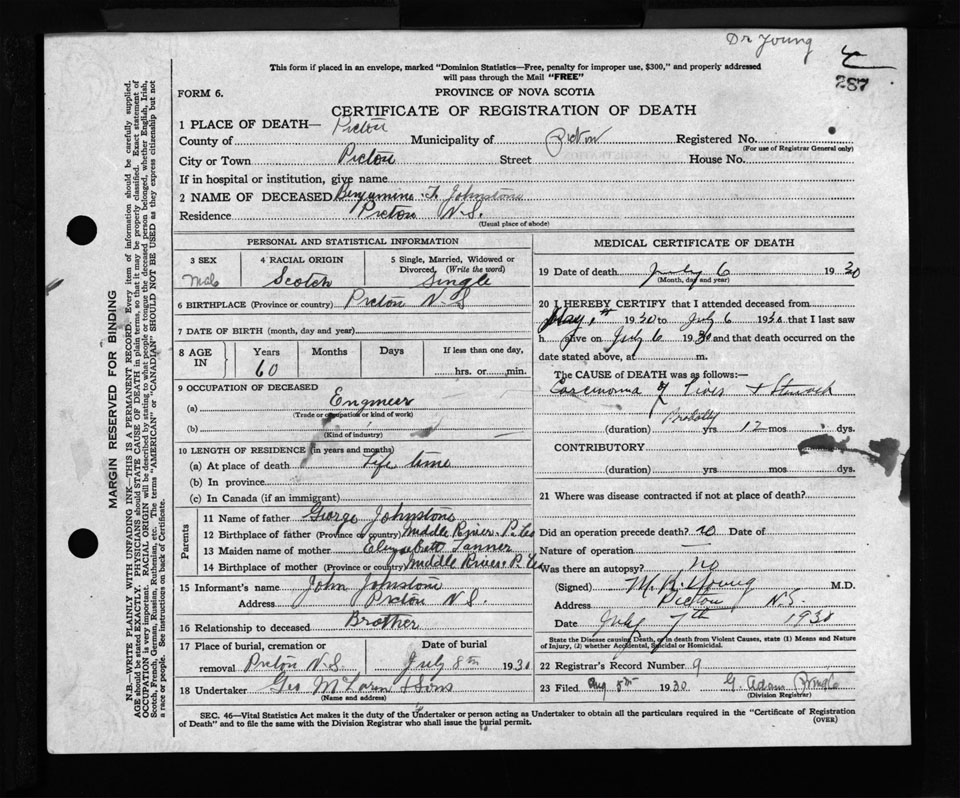 Dr Young
287
This form if placed in an envelope, marked "Dominion Statistics—Free, penalty for improper use, $300," and properly addressed
will pass through the Mail "FREE"
FORM 6.
PROVINCE OF NOVA SCOTIA
CERTIFICATE OF REGISTRATION OF DEATH
1 PLACE OF DEATH—
County of Pictou Municipality of Pictou Registered No.
(For use of Registrar General only)
City or Town Pictou Street House No.
If in hospital or institution, give name
2 NAME OF DECEASED Benjamine F. Johnstone
Residence Pictou N.S.
(Usual place of abode)
PERSONAL AND STATISTICAL INFORMATION
3 SEX 4 RACIAL ORIGIN 5 Single, Married, Widowed or
Divorced, (Write the word)
Male Scotch Single
6 BIRTHPLACE (Province or country) Pictou N.S
7 DATE OF BIRTH (month, day and year)
8 AGE IN Years Months Days If less than one day,
60 hrs. or min.
9 OCCUPATION OF DECEASED
(a) Engineer
(Trade or occupation or kind of work)
(b)
(Kind of industry)
10 LENGTH OF RESIDENCE (in years and months)
(a) At place of death Life time
(b) In province
(c) In Canada (if an immigrant)
Parents
11 Name of father George Johnstone
12 Birthplace of father (Province or country) Middle River. P. Co
13 Maiden name of mother Elizabett Tanner
14 Birthplace of mother (Province or country) Middle River. P. Co
15 Informant's name John Johnstone
Address Pictou N.S.
16 Relationship to deceased Brother
17 Place of burial, cremation or Date of burial
removal Pictou N.S. July 8th 1930
18 Undertaker Geo McLaren & Sons
(Name and address)
MEDICAL CERTIFICATE OF DEATH
19 Date of death July 6 1930
(Month, day and year)
20 I HEREBY CERTIFY that I attended deceased from
May 1st 1930 to July 6 1930 that I last saw
h alive on July 6 1930 and that death occurred on the
date stated above, at m.
The CAUSE OF DEATH was as follows:—
Carcinoma of Liver & Stomach
Probably
(duration) yrs 12 mos dys.
CONTRIBUTORY
(duration) yrs mos dys.
21 Where was disease contracted if not at place of death?
Did an operation precede death? no Date of
Nature of operation —
Was there an autopsy? no
(Signed) M. R. Young M.D.
Address Pictou N.S.
Date July 7th 1930
State the Disease causing Death, or in death from Violent Causes, state (1) Means and Nature
of Injury, (2) whether Accidental, Suicidal or Homicidal.
22 Registrar's Record Number 9
23 Filed Aug 8th 1930 G. Adam
(Division Registrar)
SEC. 46—Vital Statistics Act makes it the duty of the Undertaker or person acting as Undertaker to obtain all the particulars required in the "Certificate of Registration
of Death" and to file the same with the Division Registrar who shall issue the burial permit.
(OVER)
MARGIN RESERVED FOR BINDING
N.B.—WRITE PLAINLY WITH UNFADING INK—THIS IS A PERMANENT RECORD. Every item of information should be carefully supplied.
AGE should be stated EXACTLY. PHYSICIANS should STATE CAUSE OF DEATH in plain terms, so that it may be properly classified. Exact statement of
OCCUPATION is very important. RACIAL ORIGIN will be described by stating to what people or tongue the deceased person belonged, whether English, Irish,
Scotch, French, German, Russian, Ruthenian, etc. The terms "AMERICAN" or "CANADIAN" SHOULD NOT BE USED as they express citizenship but not
a race or people. See instructions on back of Certificate.